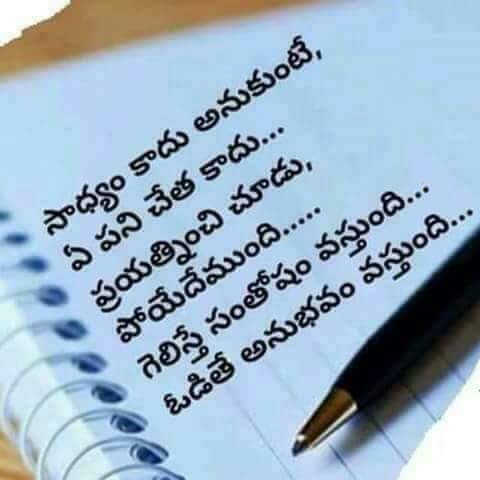 సాధ్యం కాదు అనుకుంటే,
ఏ పని చేత కాదు...
ప్రయత్నించి చూడు,
పోయేదేముంది.....
గెలిస్తే సంతోషం వస్తుంది...
ఓడితే అనుభవం వస్తుంది...